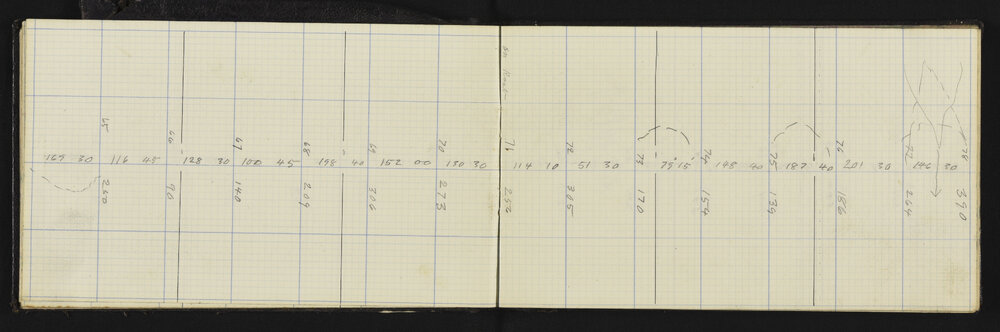 65 66 67 68 69 70 71 72 73 74 75 76 77 78
169 30 116 45 128 30 100 45 198 40 152 00 130 30 114 10 51 30 75 15 148 40 187 40 201 30 146 30
250 90 140 209 306 273 252 305 170 154 139 186 264 390